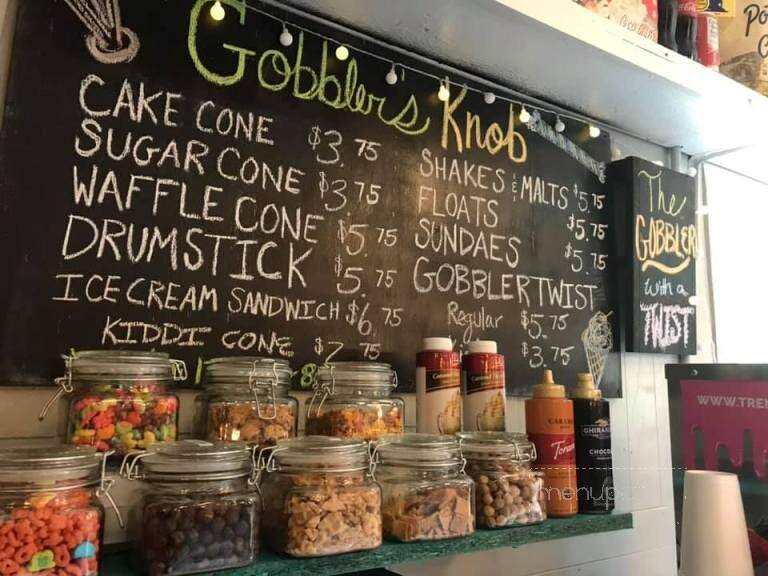 Gobbler's Knob
CAKE CONE $3.75
SUGAR CONE $3.75
WAFFLE CONE $5.75
DRUMSTICK $5.75
ICE CREAM SANDWICH $6.75
KIDDI CONE $2.75
SHAKES & MALTS $5.75
FLOATS $5.75
SUNDAES $5.75
GOBBLER TWIST
Regular $5.75
$3.75
The
GOBBLER
with a
TWIST
WWW.TREN
menu